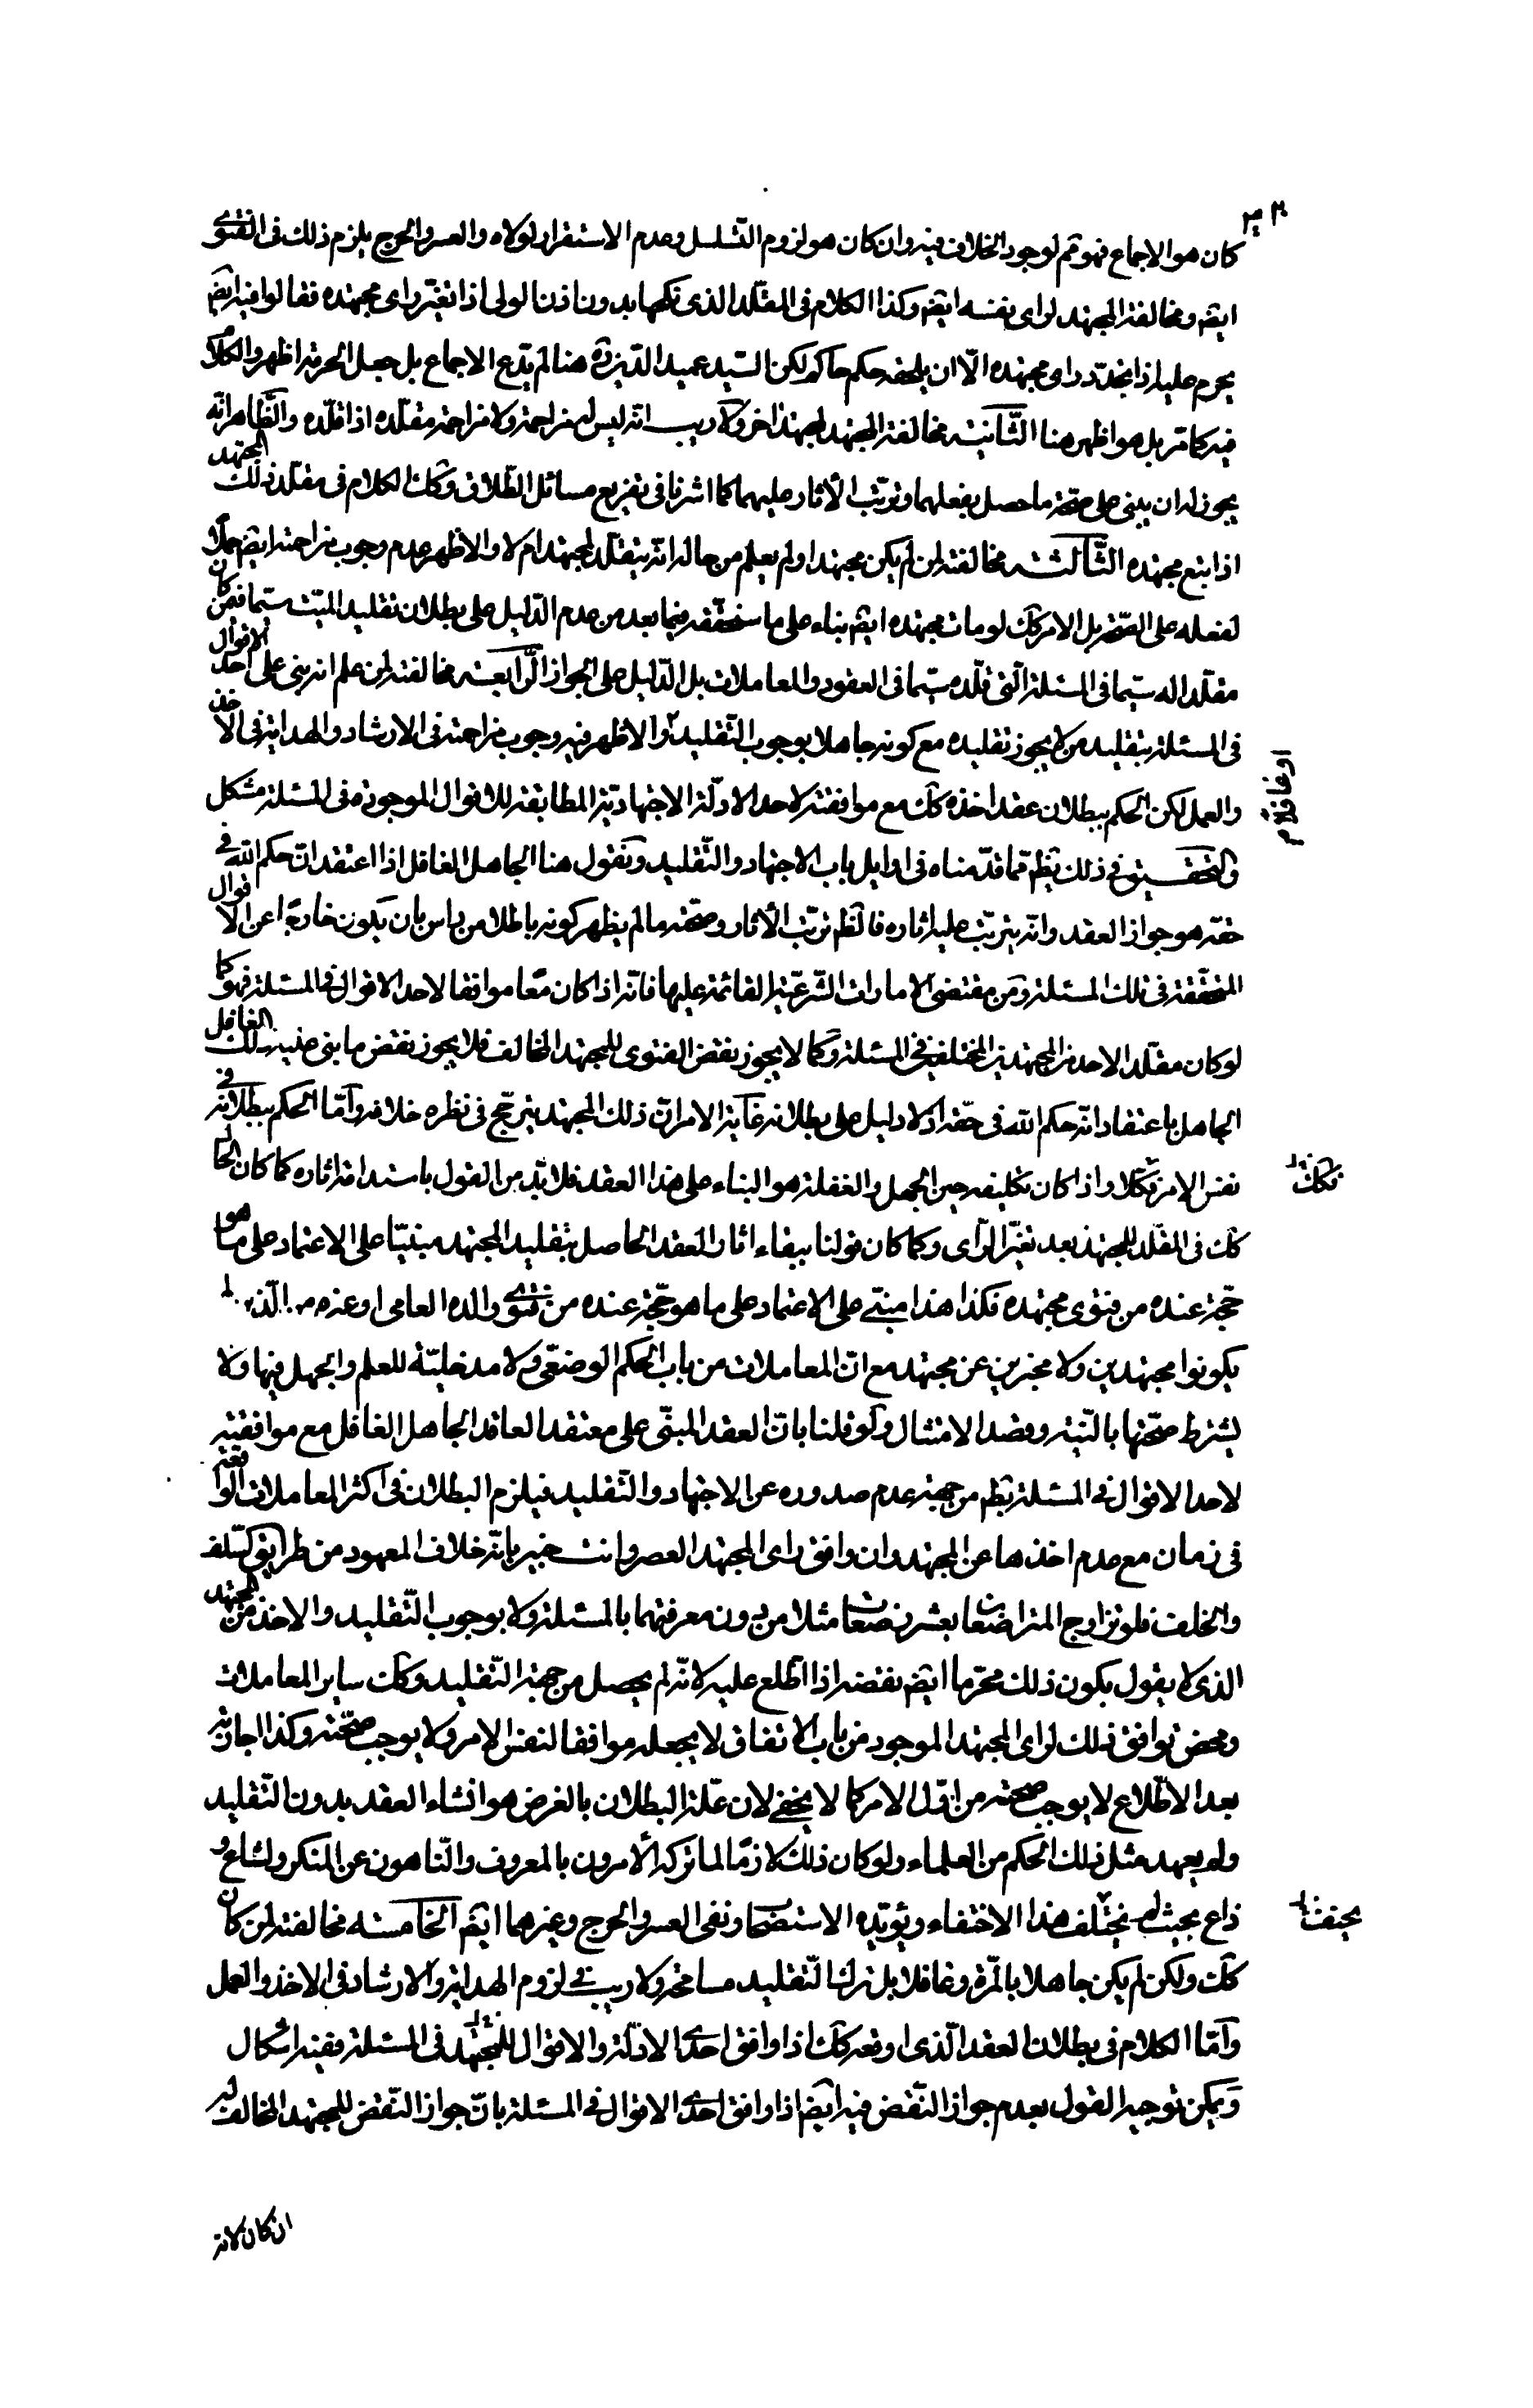 كان هو الاجماع فهو تم لوجود الخلاف فيه وان كان هو لزوم التسلسل وعدم الاستقرار لولاه والعسر والحرج يلزم ذلك في الفتوى
ايض ومخالفة المجتهد لراى نفسه ايض وكذا الكلام في المقلد الذى نكحها بدون اذن الولى اذا تغير راى مجتهده فقالوا فيه ايض
يحرم عليه اذا تجدد راى مجتهده الّا ان يلحقه حكم حاكم لكن السيد عميد الدين ره هنا لم يدع الاجماع بل جعل الحرمة اظهر والكلام
فيه كما مر بل هو اظهر هنا الثانية مخالفة المجتهد لمجتهد اخر ولا ريب انه ليس له مزاحمة ولا مزاحمة مقلده اذا قلده والظاهر انه
يجوز له ان يبنى على صحة ما حصل بفعلهما وترتب الأثار عليهما كما اشرنا في تفريع مسائل الطلاق وكك الكلام في مقلد ذلك المجتهد
اذا تبع مجتهده الثالثة مخالفته لمن لم يكن مجتهدا ولم يعلم من حاله انه يتقلد لمجتهد ام لا والاظهر عدم وجوب مزاحمته ايض حملا
لفعله على الصحة بل الامر كك لو مات مجتهده ايض بناء على ما سنحققه فيما بعد من عدم الدليل على بطلان تقليد الميت سيما فمن كان
مقلدا له سيما في المسئلة التى قلده سيما في العقود والمعاملات بل الدليل على الجواز الرابعة مخالفته لمن علم انه بنى على احد الاقوال
في المسئلة بتقليد من لا يجوز تقليده مع كونه جاهلا بوجوب التقليد والاظهر فيه وجوب مزاحمته في الارشاد والهداية في الاخذ
او غافلا م
والعمل لكن الحكم ببطلان عقد اخذه كك مع موافقته لاحد الادلة الاجتهادية المطابقة للاقوال الموجودة في المسئلة مشكل
والتحقيق في ذلك يظهر مما قدمناه في اوايل باب الاجتهاد والتقليد ونقول هنا الجاهل الغافل اذا اعتقد ان حكم الله في
حقه هو جواز العقد وانه يترتب عليه اثاره فالظ ترتب الأثار وصحته ما لم يظهر كونه باطلا من راس بان يكون خارجا عن الاقوال
المتحققة في تلك المسئلة ومن مقتضى الامارات الشرعية القائمة عليها فانه اذا كان مما موافقا لاحد الاقوال في المسئلة فهو كما
لو كان مقلدا لاحد من المجتهدين المختلفين في المسئلة وكما لا يجوز نقض الفتوى للمجتهد المخالف فلا يجوز نقض ما بنى عليه ذلك الغافل
الجاهل باعتقاد انه حكم الله في حقه اذ لا دليل على بطلانه غاية الامر ان ذلك المجتهد يترجح في نظره خلافه واما الحكم ببطلانه في
نفس الامر فكلا واذا كان تكليفه حين الجهل والغفلة هو البناء على هذا العقد فلا بد من القول باستدامة اثاره كما كان الحال
فكك
كك في المقلد للمجتهد بعد تغير الراى وكما كان قولنا ببقاء اثار العقد الحاصل بتقليد المجتهد مبنيا على الاعتماد على ما هو
حجة عنده من فتوى مجتهده فكذا هذا مبنى على الاعتماد على ما هو حجة عنده من فتوى والده العامى او غيره من الذين لم
يكونوا مجتهدين ولا مخبرين عن مجتهد مع ان المعاملات من باب الحكم الوضعى ولا مدخلية للعلم والجهل فيها ولا
يشترط صحتها بالنية وقصد الامتثال ولو قلنا بان العقد المبنى على معتقد العاقد الجاهل الغافل مع موافقته
لاحد الاقوال في المسئلة بطل من جهة عدم صدوره عن الاجتهاد والتقليد فيلزم البطلان في اكثر المعاملات الواقعة
في زمان مع عدم اخذها عن المجتهد وان وافق راى المجتهد العصر وانت خبير بانه خلاف المعهود من طرايق السلف
والخلف فلو تزاوج المتراضعان بعشر رضعات مثلا من دون معرفتهما بالمسئلة ولا بوجوب التقليد والاخذ من المجتهد
الذى لا يقول بكون ذلك محرما ايض نقضه اذا اطلع عليه لانه لم يحصل من جهة التقليد وكك ساير المعاملات
ومحض توافق ذلك لراى المجتهد الموجود من باب الاتفاق لا يجعله موافقا لنفس الامر ولا يوجب صحته وكذا اجازته
بعد الاطلاع لا يوجب صحته من اول الامر كما لا يخفى لان علة البطلان بالفرض هو انشاء العقد بدون التقليد
ولم يعهد مثل ذلك الحكم من العلماء ولو كان ذلك لازما لما تركه الأمرون بالمعروف والناهون عن المنكر ولشاع و
ذاع بحيث لم يختلف هذا الاختفاء ويؤيده الاستصحاب ونفى العسر والحرج وغيرهما ايض الخامسة مخالفته لمن كان
يختف
كك ولكن لم يكن جاهلا بالمرة وغافلا بل ترك التقليد مسامحة ولا ريب في لزوم الهداية والارشاد في الاخذ والعمل
واما الكلام في بطلان العقد الذى اوقعه كك اذا وافق احدى الادلة والاقوال للمجتهد في المسئلة ففيه اشكال
ويمكن توجيه القول بعدم جواز النقض فيه ايض اذا وافق احدى الاقوال في المسئلة بان جواز النقض للمجتهد المخالف له
ان كان لانه